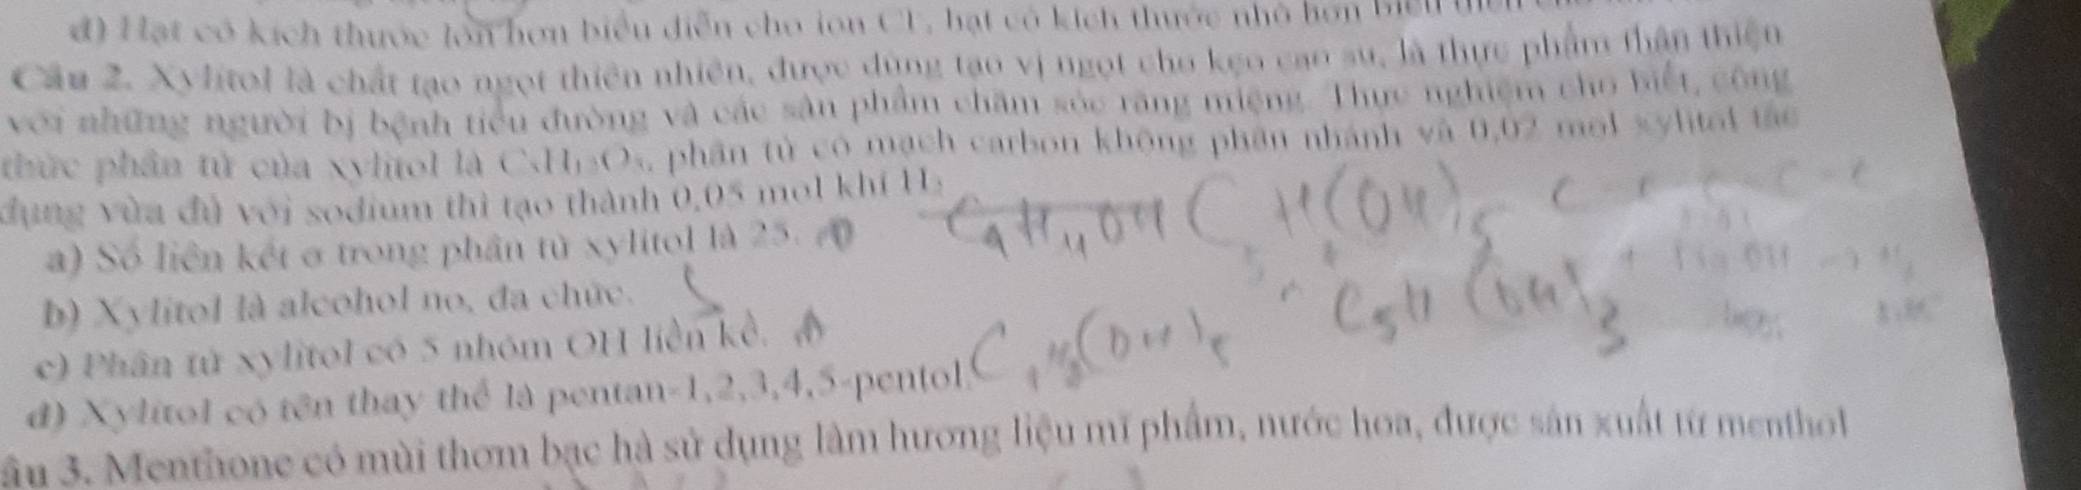 d) Hạt có kích thước lớn hơn biểu diễn cho ion Cl⁻, hạt có kích thước nhỏ hơn
Câu 2. Xylitol là chất tạo ngọt thiên nhiên, được dùng tạo vị ngọt cho kẹo cao su, là thực phẩm thân thiện
với những người bị bệnh tiểu đường và các sản phẩm chăm sóc răng miệng. Thực nghiệm cho biết, công
thức phân tử của xylitol là C₅H₁₂O₅, phân tử có mạch carbon không phân nhánh và 0,02 mol xylitol tác
dụng vừa đủ với sodium thì tạo thành 0,05 mol khí H₂
a) Số liên kết σ trong phân tử xylitol là 25.
b) Xylitol là alcohol no, đa chức.
c) Phân tử xylitol có 5 nhóm OH liền kề.
d) Xylitol có tên thay thế là pentan-1,2,3,4,5-pentol.
âu 3. Menthone có mùi thơm bạc hà sử dụng làm hương liệu mĩ phẩm, nước hoa, được sản xuất từ menthol